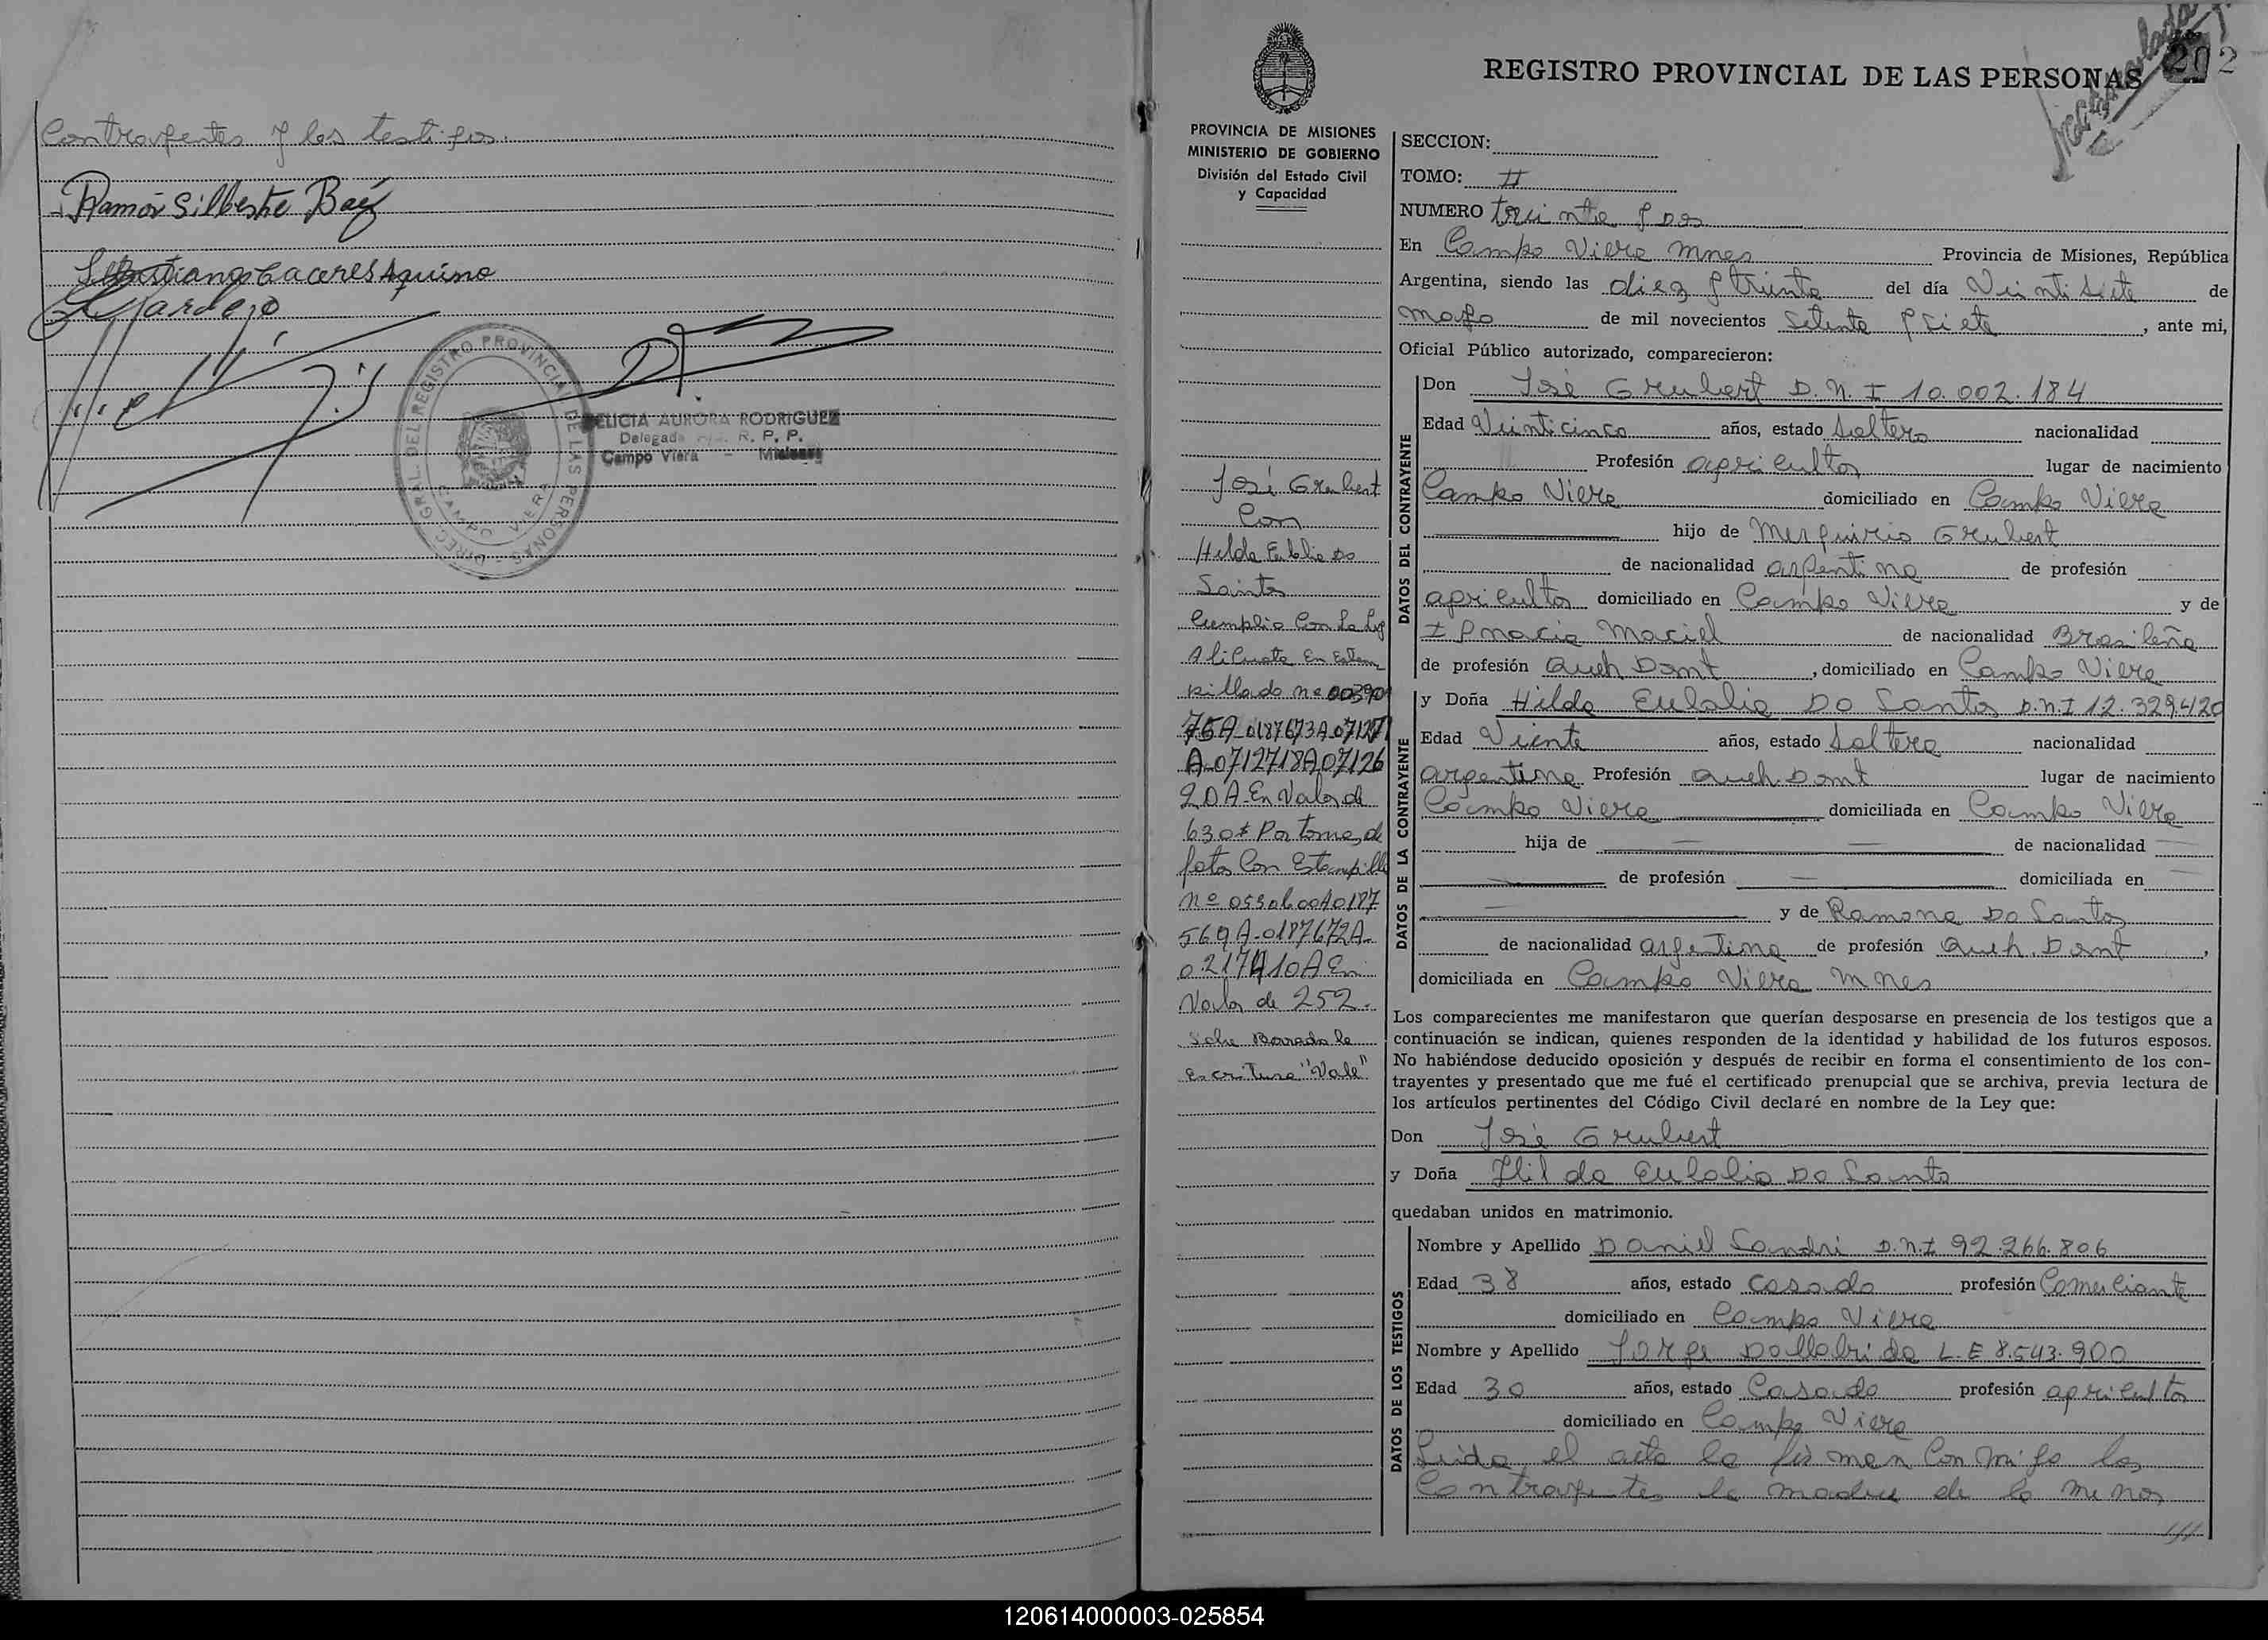 Contrayentes y los testigos.
Ramón Silbestre Báez
Sebastiana Caceres Aquino
DIREC. GRAL. DEL REGISTRO PROVINCIAL DE LAS PERSONAS
CAMPO VIERA
FELICIA AURORA RODRIGUEZ
Delegada R. P. P.
Campo Viera - Misiones
202
REGISTRO PROVINCIAL DE LAS PERSONAS
PROVINCIA DE MISIONES
MINISTERIO DE GOBIERNO
División del Estado Civil
y Capacidad
José Grubert
Con
Hilda Eulalia Do
Santos
Cumplio Con La Ley
Alicuota En Estam
pillado no 00390
75A-0187673A-07127
A-0712718A07126
20A-En Valor de
630$ Por toma de
fotos Con Estampilla
Nº 0530600A0187
569A-0187672A-
0217410A En
Valor de 252.
Sobre Borrado la
escritura "Vale"
SECCION:
TOMO: II
NUMERO treinta y dos
En Campo Viera Mnes Provincia de Misiones, República
Argentina, siendo las diez y treinta del día Veintisiete de
mayo de mil novecientos Setenta y Siete, ante mi,
Oficial Público autorizado, comparecieron:
DATOS DEL CONTRAYENTE
Don José Grubert D.N.I 10.002.184
Edad Veinticinco años, estado Soltero nacionalidad
Profesión agricultor lugar de nacimiento
Campo Viera domiciliado en Campo Viera
hijo de Grubert
de nacionalidad argentina de profesión
agricultor domiciliado en Campo Viera y de
Ignacia Maciel de nacionalidad Brasileña
de profesión Queh Domt, domiciliado en Campo Viera
DATOS DE LA CONTRAYENTE
y Doña Hilda Eulalia Do Santos D.N.I 12.329.420
Edad Viente años, estado Soltera nacionalidad
argentina Profesión Queh. Domt lugar de nacimiento
Campo Viera domiciliada en Campo Viera
hija de de nacionalidad
de profesión domiciliada en
y de Ramona Do Santos
de nacionalidad argentina de profesión Queh. Domt,
domiciliada en Campo Viera Mnes
Los comparecientes me manifestaron que querían desposarse en presencia de los testigos que a
continuación se indican, quienes responden de la identidad y habilidad de los futuros esposos.
No habiéndose deducido oposición y después de recibir en forma el consentimiento de los con-
trayentes y presentado que me fué el certificado prenupcial que se archiva, previa lectura de
los artículos pertinentes del Código Civil declaré en nombre de la Ley que:
Don José Grubert
y Doña Hilda Eulalia Do Santo
quedaban unidos en matrimonio.
DATOS DE LOS TESTIGOS
Nombre y Apellido Daniel Sandri D.N.I 92.266.806
Edad 38 años, estado Casado profesión Comerciante
domiciliado en Campo Viera
Nombre y Apellido Jorge Dallabrida L.E 8.543.900
Edad 30 años, estado Casado profesión agricultor
domiciliado en Campo Viera
Leida el acta la firman Conmigo los
Contrayentes la madre de la menor
///
120614000003-025854